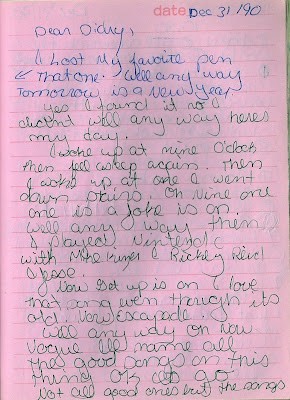 date Dec 31, '90
Dear Diary,
I Lost My favorite pen
That one. Well any way
Tomorrow is a New Year
Yes I found it no I
didn't well any way heres
my day.
I woke up at nine O'clock
then fell asleep again. Then
I woke up at one I went
down stairs. Oh Nine one
one is a Joke is on.
Well any way then
I played Nintendo
with Mike
Now Get up is on I love
that song even though its
old. Now Escapade.
Well any way on Now
Vogue Ill name all
the good songs on this
thing Ok ill go
Not all good ones but the songs